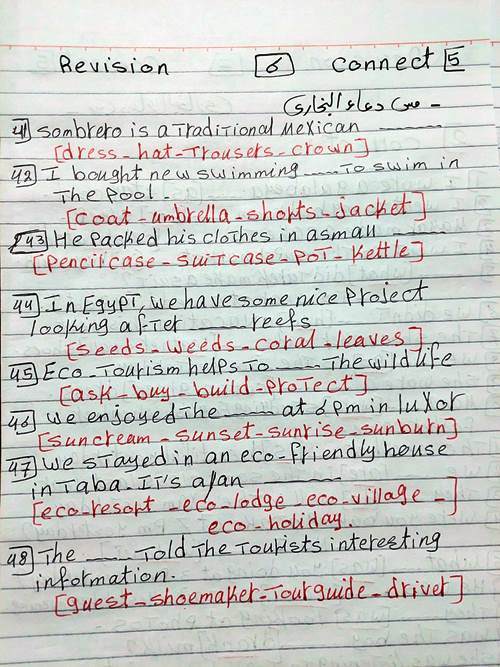 Revision 6 Connect 5
مس دعاء البخارى -
41 Sombrero is a Traditional Mexican ______
[dress - hat - Trousers - crown]
42 I bought new swimming ______ To swim in
The pool.
[coat - umbrella - shorts - jacket]
43 He packed his clothes in a small ______
[pencilcase - suitcase - pot - kettle]
44 In Egypt, we have some nice project
looking after ______ reefs
[seeds - weeds - coral - leaves]
45 Eco-Tourism helps To ______ The wild life
[ask - buy - build - protect]
46 we enjoyed The ______ at 6 pm in luxor
[suncream - sunset - sunrise - sunburn]
47 we stayed in an eco-friendly house
in Taba. It's a/an ______
[eco-resort - eco-lodge - eco-village -]
eco-holiday.
48 The ______ Told The Tourists interesting
information.
[guest - shoemaker - Tourguide - driver]